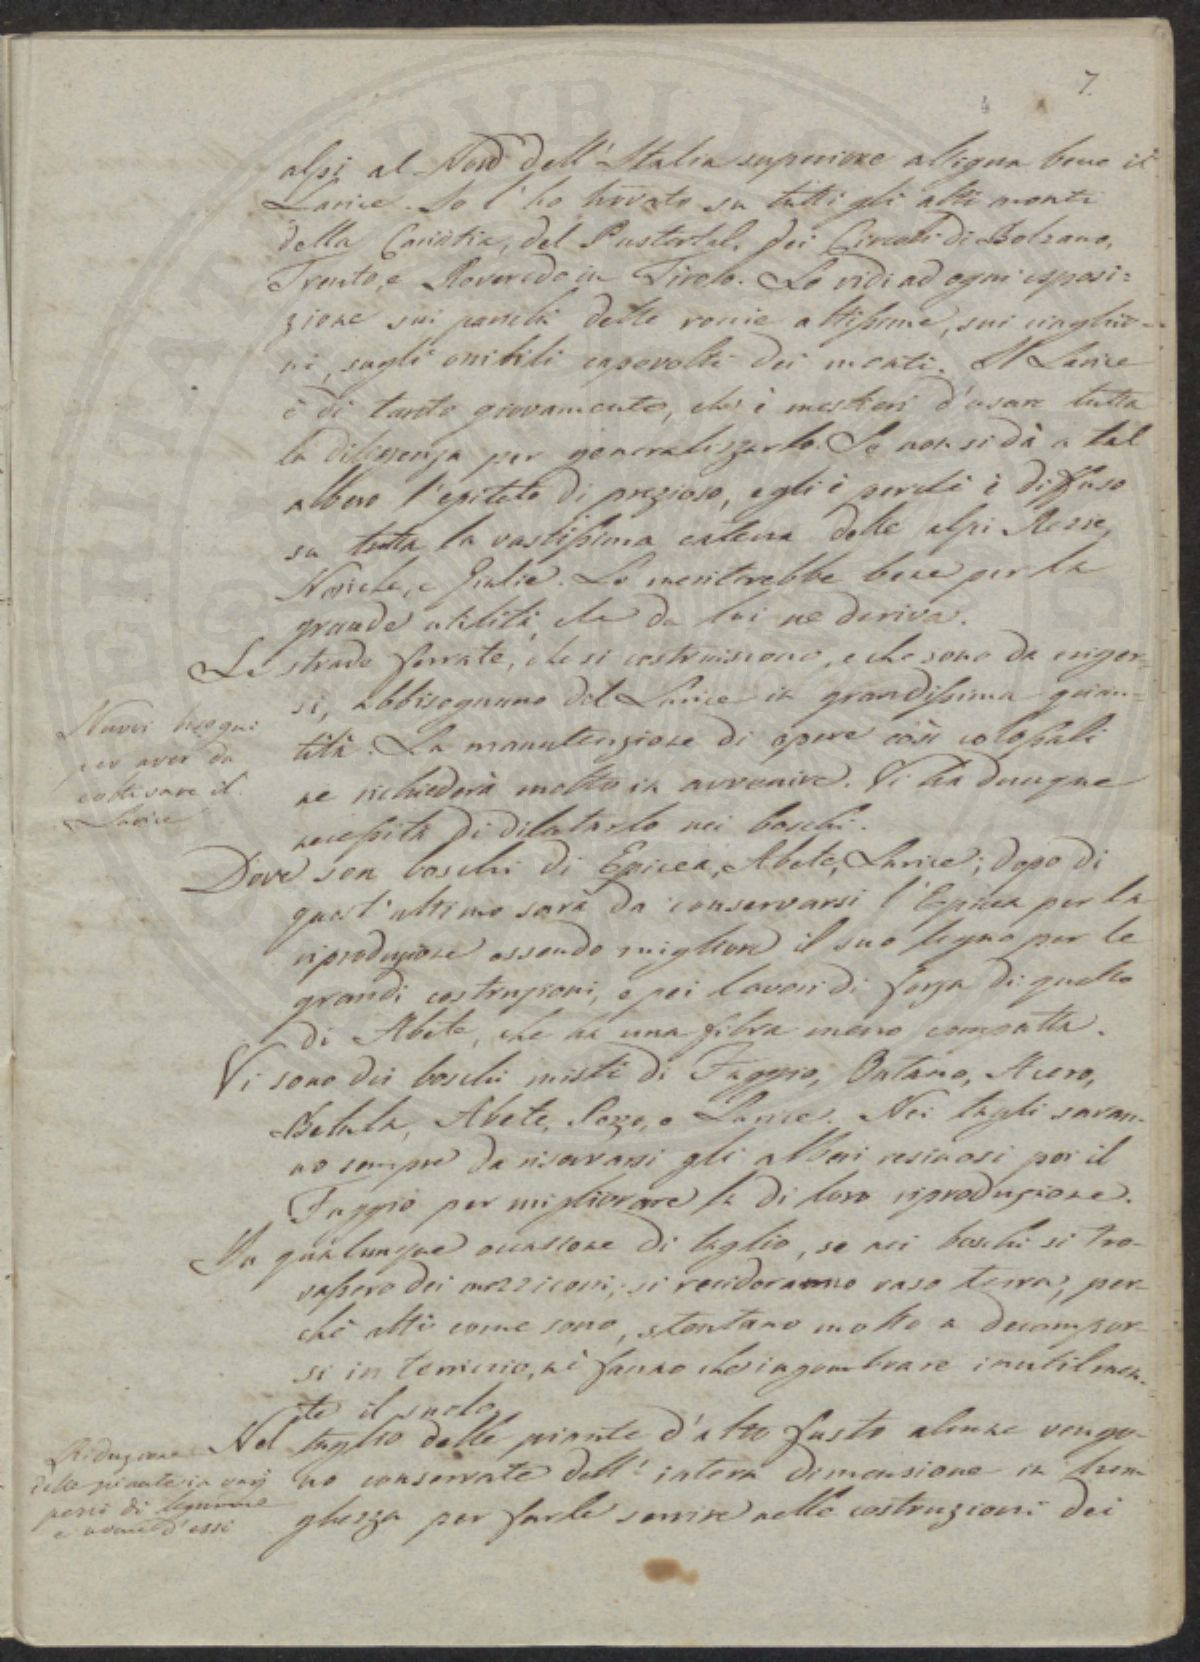 7.
alpi al Nord dell'Italia superiore alligna bene il
Larice. Io l'ho trovato su tutti gli alti monti
della Carintia, del Pustertal, dei Circoli di Bolzano,
Trento, e Roveredo in Tirolo. Lo vidi ad ogni esposi=
zione sui panchi delle roccie altissime, sui
ni, sugli orribili capovolti dei monti. Il Larice
è di tanto giovamento, che è mestieri d'usare tutta
la diligenza per generalizzarlo. Se non si dà a tal
albero l'epiteto di prezioso, egli è perchè è diffuso
su tutta la vastissima catena delle alpi Rezie,
Noriche, e Giulie. Lo meriterebbe bene per la
grande utilità, che da lui ne deriva.
Le strade ferrate, che si costruiscono, e che sono da eriger=
si, abbisognano del Larice in grandissima quan-
tità. La manutenzione di opere così colossali
ne richiederà molto in avvenire. Vi ha dunque
necessità di dilatarlo nei boschi.
Nuovi bisogni
per aver da
coltivare il
Larice
Dove son boschi di Epicea, Abete, Larice; dopo di
quest'ultimo sarà da conservarsi l'Epicea per la
riproduzione essendo migliore il suo legno per le
grandi costruzioni, e pei lavori di forza di quello
di Abete, che ha una fibra meno compatta.
Vi sono dei boschi misti di Faggio, Ontano, Acero,
Betula, Abete, Pezzo, e Larice. Nei tagli saran-
no sempre da riservarsi gli alberi resinosi poi il
Faggio per migliorare la di loro riproduzione.
In qualunque occasione di taglio, se nei boschi si tro-
vassero dei mozziconi, si recideranno raso terra, per-
chè alti come sono, stentano molto a decompor-
si in terriccio, nè fanno che ingombrare inutilmen-
te il suolo.
Nel taglio delle piante d'alto fusto alcune vengo-
no conservate dell'intera dimensione in lun-
ghezza per farle servire nelle costruzioni dei
Riduzione
delle piante in varj
pezzi di legname
e nome d'essi